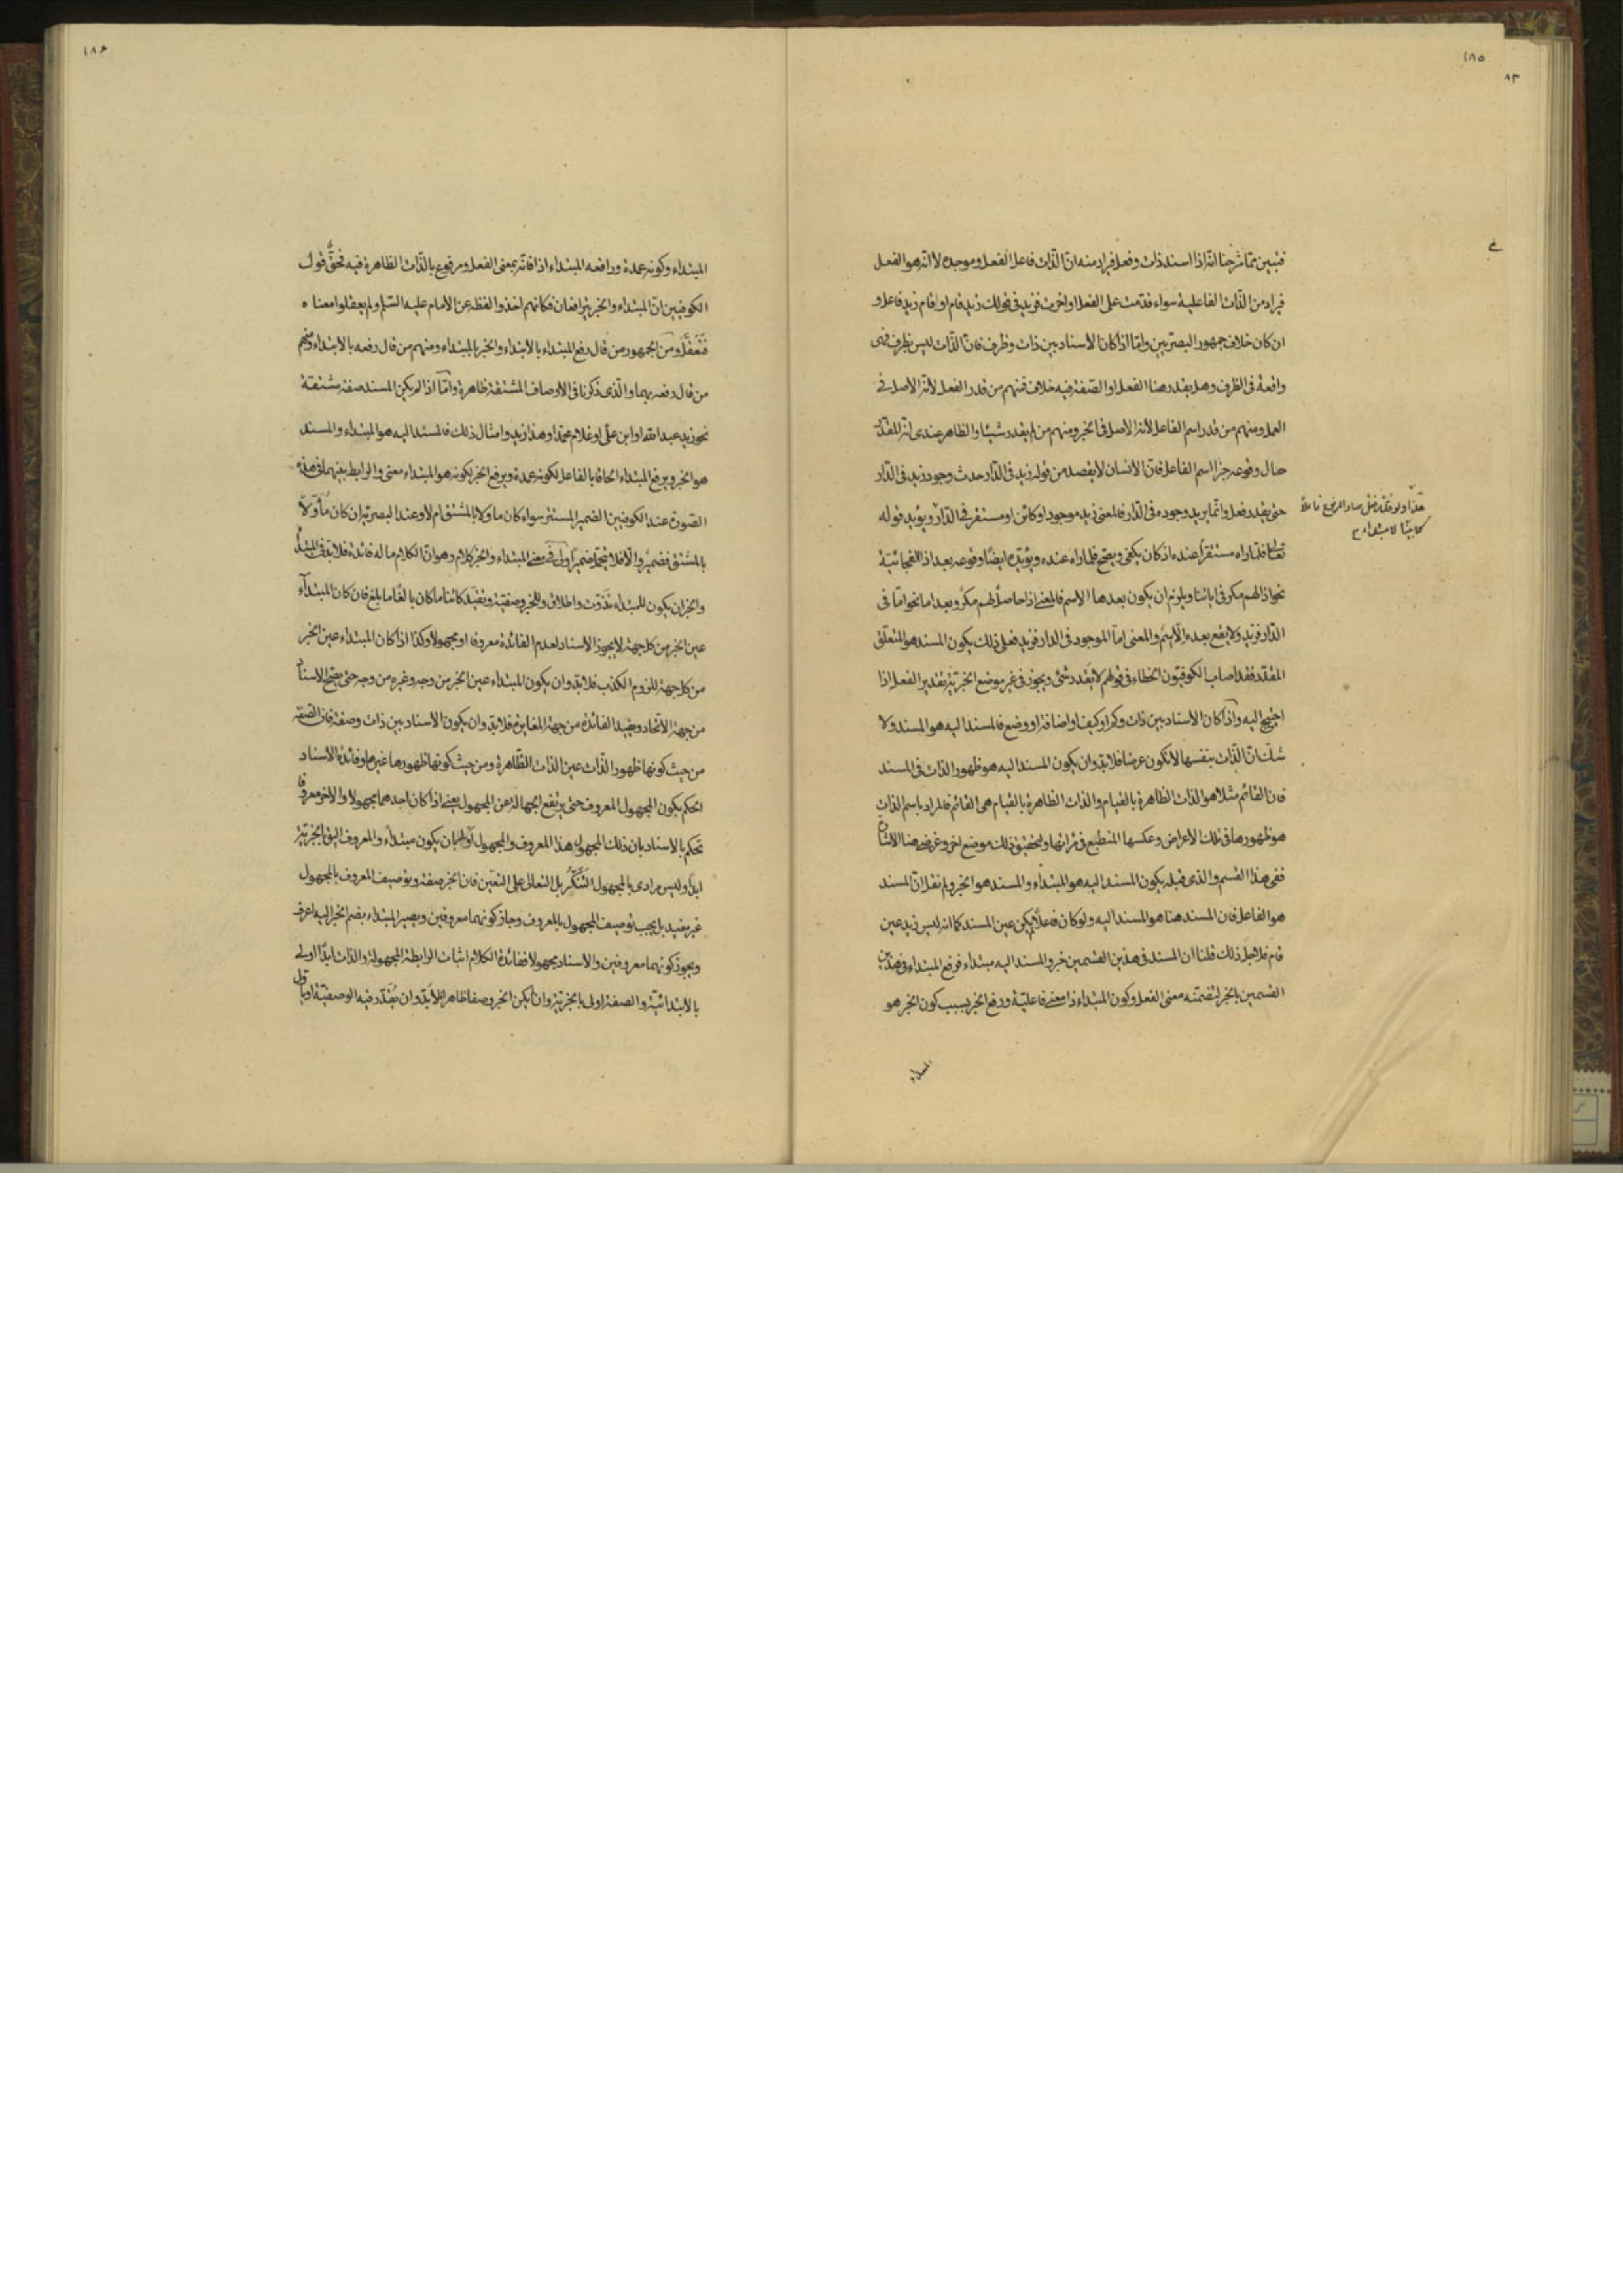 ١٨٥
٨٣
فتبين مما شرحنا انه اذا اسند ذات وفعل فيراد منه ان الذات فاعل الفعل وموجده لا انه هو الفعل
فيراد من الذات الفاعلية سواء قدمت على الفعل او اخرت فزيد في قولك زيد قام او قام زيد فاعل و
ان كان خلاف جمهور البصريين واما اذا كان الاسناد بين ذات وظرف فان الذات ليس بظرف فهى
واقعة فى الظرف وهل يقدر هنا الفعل او الصفة فيه خلاف فمنهم من قدر الفعل لانه الاصل في
العمل ومنهم من قدر اسم الفاعل لانه الاصل فى الخبر ومنهم من لم يقدر شيئا والظاهر عندى انه المقدر
حال وقوعه خبرا اسم الفاعل فان الانسان لا يقصد من قوله زيد فى الدار حدث وجود زيد فى الدار
حتى يقدر فعل وانما يريد وجوده فى الدار فالمعنى زيد موجود او كائن او مستقر في الدار ويؤيد قوله
تعالى فلما راه مستقرا عنده اذ كان يكفى ويصح فلما راه عنده ويؤيده ايضا وقوعه بعد اذا الفجائية
نحو اذا لهم مكر فى اياتنا ويلزم ان يكون بعدها الاسم فالمعنى اذا حاصل لهم مكر وبعد اما نحو اما فى
الدار فزيد ولا يقع بعده الا اسم والمعنى اما الموجود فى الدار فزيد فعلى ذلك يكون المسند هو المتعلق
المقدر فقد اصاب الكوفيون الخطاء فى قولهم لا يقدر شئ ويجوز فى غير موضع الخبرية تقدير الفعل اذا
احتيج اليه واذا كان الاسناد بين ذات وكم او كيف او اضافة او وضع فالمسند اليه هو المسند ولا
شك ان الذات بنفسها لا تكون عرضا فلا بد وان يكون المسند اليه هو ظهور الذات فى المسند
فان القائم مثلا هو الذات الظاهرة بالقيام والذات الظاهرة بالقيام هى القائم فالمراد باسم الذات
هو ظهورها فى تلك الاعراض وعكسها المنطبع فى مراتها ولتحقيق ذلك موضع اخر وغرضى هنا الاشارة
ففى هذا القسم والذى قبله يكون المسند اليه هو المبتداء والمسند هو الخبر ولم نقل ان المسند
هو الفاعل فان المسند هنا هو المسند اليه ولو كان فاعلا لم يكن عين المسند كما انه ليس زيد عين
قام فلاجل ذلك قلنا ان المسند فى هذين القسمين خبر والمسند اليه مبتداء فرفع المبتداء فى هذين
القسمين بالخبر لتضمنه معنى الفعل وكون المبتداء ذا معنى فاعلية ورفع الخبر بسبب كون الخبر هو
المبتداء
هذا ولو قدر فعل صار المرفوع فاعلا
لا مبتداء
١٨٦
المبتداء وكونه عمدة ورافعه المبتداء اذا فانه بمعنى الفعل ومرفوع بالذات الظاهرة فيه فحق قول
الكوفيين ان المبتداء والخبر يترافعان فكانهم اخذوا لفظه عن الامام عليه السلم ولم يعقلوا معناه
فتعقل ومن الجمهور من قال رفع المبتداء بالابتداء والخبر بالمبتداء ومنهم من قال رفعه بالابتداء ومنهم
من قال رفعه بهما والذى ذكرنا فى الاوصاف المشتقة ظاهرة واما اذا لم يكن المسند صفة مشتقة
نحو زيد عبد الله او ابن على او غلام محمد او هذا زيد وامثال ذلك فالمسند اليه هو المبتداء والمسند
هو الخبر ويرفع المبتداء الحاقا بالفاعل لكونه عمدة ويرفع الخبر بكونه هو المبتداء معنى والرابط بينهما فى هذه
الصورة عند الكوفيين الضمير المستتر سواء كان ماولا بالمشتق ام لا وعند البصرية ان كان مأولا
بالمشتق فضمير والا فلا يتحمل ضميرا ولى فى معنى المبتداء والخبر كلام وهو ان الكلام ما له فائدة فلا بد فى المبتدأ
والخبر ان يكون للمبتداء تذوت واطلاق وللخبر وصفية وتقيد كائنا ما كان بالغا ما بلغ فان كان المبتداء
عين الخبر من كل جهة لا يجوز الاسناد لعدم الفائدة معروفا او مجهولا وكذا اذا كان المبتداء غير الخبر
من كل جهة للزوم الكذب فلا بد وان يكون المبتداء عين الخبر من وجه وغيره من وجه حتى يصح الاسناد
من جهة الاتحاد ويفيد الفائدة من جهة المغايرة فلا بد وان يكون الاسناد بين ذات وصفة فان الصفة
من حيث كونها ظهور الذات عين الذات الظاهرة ومن حيث كونها ظهورها غيرها وفائدة الاسناد
الحكم بكون المجهول المعروف حتى يرتفع الجهالة عن المجهول يعنى اذا كان احدهما مجهولا والاخر معروفا
تحكم بالاسناد بان ذلك المجهول هذا المعروف والمجهول اولى بان يكون مبتداء والمعروف اليق بالخبرية
ابدا وليس مرادى بالمجهول التنكر بل التعالى على التعين فان الخبر صفة وتوصيف المعروف بالمجهول
غير مفيد بل يجب توصيف المجهول بالمعروف وجاز كونهما معروفين ويصير المبتداء بضم الخبر اليه اعرف
ويجوز كونهما معروفين والاسناد مجهولا ففائدة الكلام اثبات الرابطة المجهولة والذات ابدا اولى
بالابتدائية والصفة اولى بالخبرية وان لم يكن الخبر وصفا ظاهرا فلا بد وان يقدر فيه الوصفية او ياول